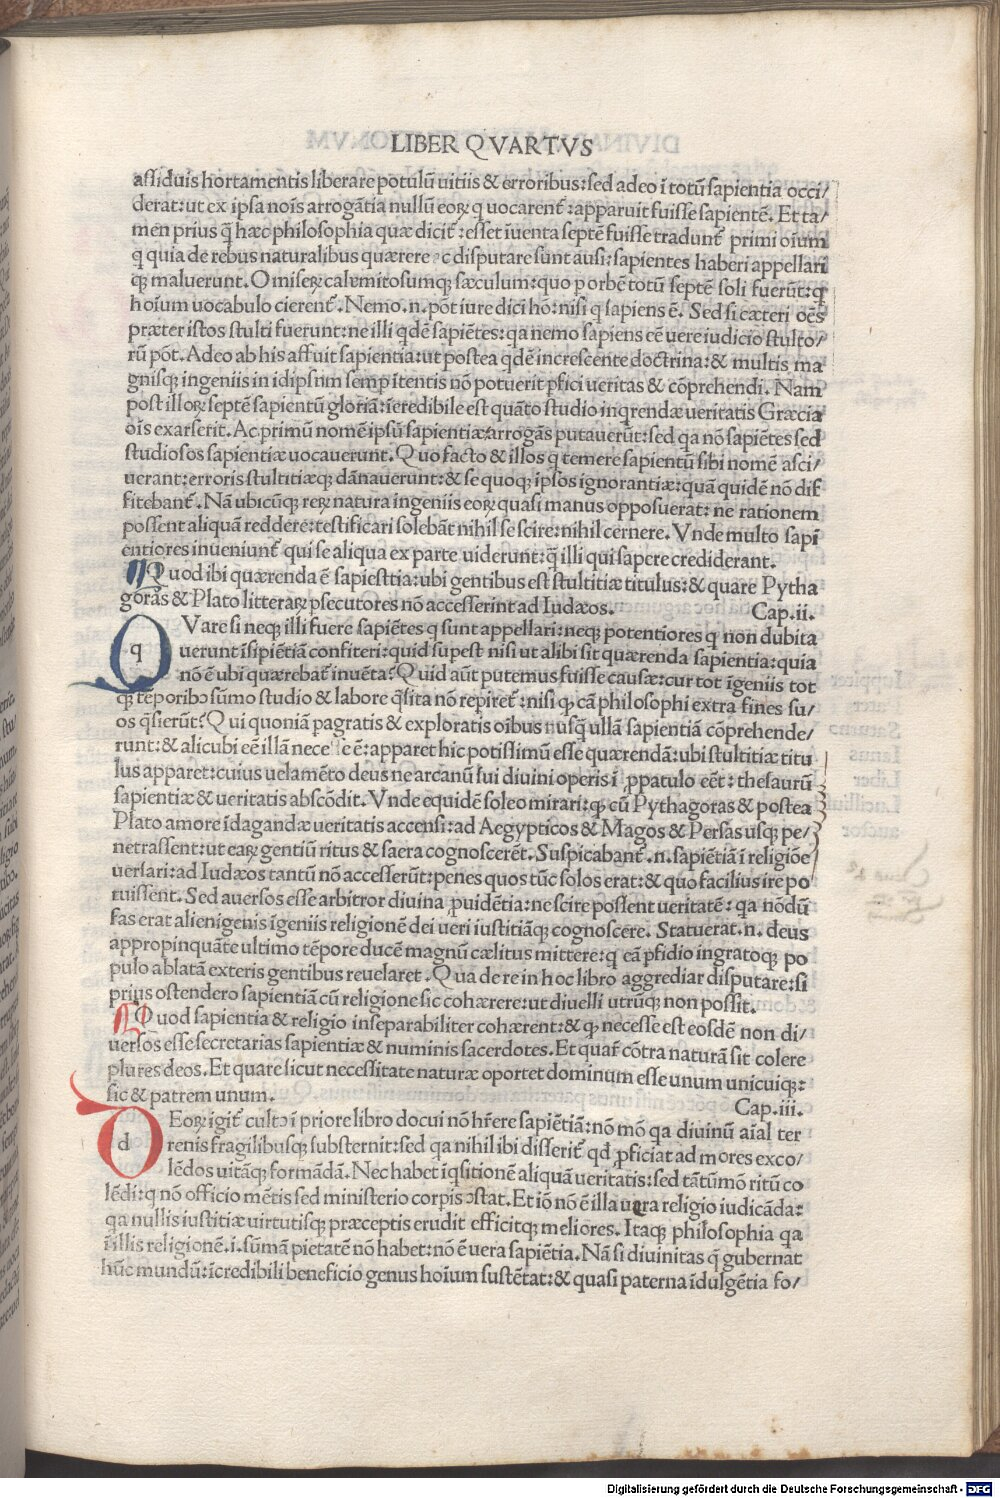 LIBER QVARTVS
assiduis hortamentis liberare potulũ uitiis & erroribus: sed adeo ĩ totũ sapientia occi/
derat: ut ex ipsa nois arrogãtia nullũ eoꝝ q uocarent᷑: apparuit fuisse sapientẽ. Et ta/
men prius q̃ hæc philosophia quæ dicit᷑: esset ĩuenta septẽ fuisse tradunt᷑ primi oĩum
q quia de rebus naturalibus quærere ac disputare sunt ausi: sapientes haberi appellari
qꝫ maluerunt. O miseꝝ calamitosumqꝫ sæculum: quo p orbẽ totũ septẽ soli fuerũt: q
hoĩum uocabulo cierent᷑. Nemo .n. põt iure dici hõ: nisi q sapiens ẽ. Sed si cæteri oẽs
præter istos stulti fuerunt: ne illi qdẽ sapiẽtes: qa nemo sapiens eẽ uere iudicio stulto/
rũ põt. Adeo ab his affuit sapientia: ut postea qdẽ increscente doctrina: & multis ma
gnisqꝫ ingeniis in id ipsum semp ĩtentis nõ potuerit pfici ueritas & cõprehendi. Nam
post illoꝝ septẽ sapientũ gloriã: ĩcredibile est quãto studio inqrendæ ueritatis Græcia
oĩs exarserit. Ac primũ nomẽ ipsũ sapientiæ: arrogãs putauerũt: sed qa nõ sapiẽtes sed
studiosos sapientiæ uocauerunt. Quo facto & illos q temere sapientũ sibi nomẽ asci/
uerant: erroris stultitiæqꝫ dãnauerunt: & se quoqꝫ ipsos ignorantiæ: quã quidẽ nõ dif
fitebant᷑. Nã ubicũqꝫ reꝝ natura ingeniis eoꝝ quasi manus opposuerat: ne rationem
possent aliquã reddere: testificari solebãt nihil se scire: nihil cernere. Vnde multo sapi
entiores inueniunt᷑ qui se aliqua ex parte uiderunt: q̃ illi qui sapere crediderant.
Quod ibi quærenda ẽ sapiesttia: ubi gentibus est stultitiæ titulus: & quare Pytha
goras & Plato litteraꝝ psecutores nõ accesserint ad Iudæos. Cap.ii.
q Vare si neqꝫ illi fuere sapiẽtes q sunt appellari: neqꝫ potentiores q non dubita
uerunt ĩsipiẽtiã confiteri: quid supest nisi ut alibi sit quærenda sapientia: quia
nõ ẽ ubi quærebat᷑ inuẽta? Quid aũt putemus fuisse causæ: cur tot ĩgeniis tot
qꝫ tẽporibꝰ sũmo studio & labore q̃sita nõ repiret᷑: nisi qꝫ eã philosophi extra fines su/
os q̃sierũt? Qui quoniã pagratis & exploratis oĩbus nusq̃ ullã sapientiã cõprehende/
runt: & alicubi eẽ illã nece e ẽ: apparet hic potissimũ esse quærendã: ubi stultitiæ titu
lus apparet: cuius uelamẽto deus ne arcanũ sui diuini operis ĩ ꝓpatulo eẽt: thesaurũ
sapientiæ & ueritatis abscõdit. Vnde equidẽ soleo mirari: qꝫ cũ Pythagoras & postea
Plato amore ĩdagandæ ueritatis accensi: ad Aegypticos & Magos & Persas usqꝫ pe/
netrassent: ut eaꝝ gentiũ ritus & saera cognoscerẽt. Suspicabant᷑ .n. sapiẽtiã ĩ religiõe
uersari: ad Iudæos tantũ nõ accesserũt: penes quos tũc solos erat: & quo facilius ire po
tuissent. Sed auersos esse arbitror diuina ꝓuidẽtia: ne scire possent ueritatẽ: qa nõdũ
fas erat alienigenis ĩgeniis religionẽ dei ueri iustitiãqꝫ cognoscere. Statuerat .n. deus
appropinquãte ultimo tẽpore ducẽ magnũ cælitus mittere: q eã pfidio ingratoqꝫ po
pulo ablatã exteris gentibus reuelaret. Qua de re in hoc libro aggrediar disputare: si
prius ostendero sapientiã cũ religione sic cohærere: ut diuelli utrũqꝫ non possit.
Quod sapientia & religio inseparabiliter cohærent: & qꝫ necesse est eosdẽ non di/
uersos esse secretarias sapientiæ & numinis sacerdotes. Et quaꝛ cõtra naturã sit colere
plures deos. Et quare sicut necessitate naturæ oportet dominum esse unum unicuiqꝫ:
sic & patrem unum. Cap.iii.
d Eoꝝ igit᷑ cultꝰ ĩ priore libro docui nõ hr̃e sapiẽtiã: nõ mõ qa diuinũ aĩal ter
renis fragilibusqꝫ substernit: sed qa nihil ibi disserit᷑ qđ ꝓficiat ad mores exco/
lẽdos uitãqꝫ formãdã. Nec habet ĩq̃sitionẽ aliquã ueritatis: sed tãtũmõ ritũ co
lẽdi: q nõ officio mẽtis sed ministerio corpis ꝯstat. Et iõ nõ ẽ illa uera religio iudicãda:
qa nullis iustitiæ uirtutisqꝫ præceptis erudit efficitqꝫ meliores. Itaqꝫ philosophia qa
ĩ illis religionẽ .i. sũmã pietatẽ nõ habet: nõ ẽ uera sapiẽtia. Nã si diuinitas q̃ gubernat
hũc mundũ: ĩcredibili beneficio genus hoĩum sustẽtat: & quasi paterna ĩdulgẽtia fo/
Digitalisierung gefördert durch die Deutsche Forschungsgemeinschaft - DFG